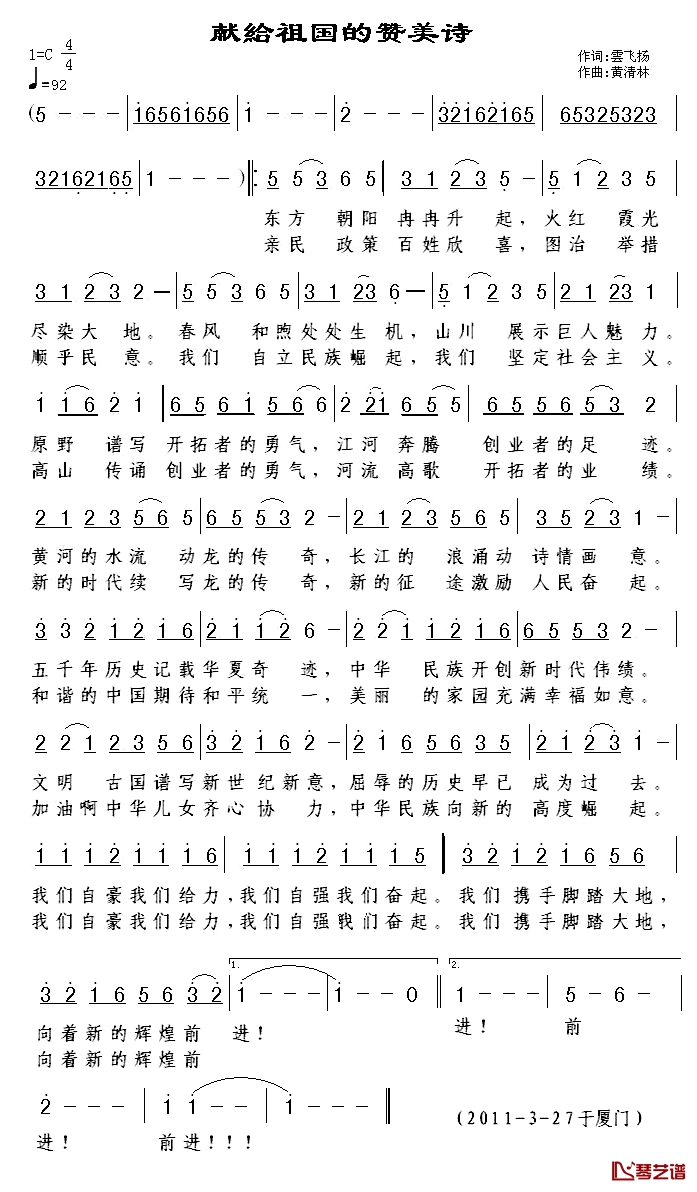 献给祖国的赞美诗
1=C 4/4
作词:雲飞扬
♩=92
作曲:黄清林
(5 - - - | 16561656 | 1 - - - | 2 - - - | 32162165 | 65325323 |
32162165 | 1 - - - ) ‖: 5 5 3 6 5 | 3 1 2 3 5 - | 5 1 2 3 5
东方 朝阳 冉冉升 起，火红 霞光
亲民 政策 百姓欣 喜，图治 举措
3 1 2 3 2 - | 5 5 3 6 5 | 3 1 2 3 6 - | 5 1 2 3 5 | 3 2 2 3 1 - |
尽染大 地。春风 和煦处处生 机，山川 展示巨人魅 力。
顺乎民 意。我们 自立民族崛 起，我们 坚定社会主 义。
1 1 6 2 1 | 6 5 6 1 6 5 3 | 2 2 1 6 5 6 | 6 5 5 6 5 3 2 |
原野 谱写 开拓者的勇气，江河 奔腾 创业者的足 迹。
高山 传诵 创业者的勇气，河流 高歌 开拓者的业 绩。
2 1 2 3 5 6 5 | 6 5 5 3 2 - | 2 1 2 3 5 6 5 | 3 5 2 3 1 - |
黄河的水流 动龙的传 奇，长江的 浪涌动 诗情画 意。
新的时代续 写龙的传 奇，新的征 途激励 人民奋 起。
3 3 2 2 1 2 1 6 | 2 1 1 2 6 - | 2 2 1 6 5 6 5 3 | 5 5 3 5 2 - |
五千年历史记载华夏奇 迹，中华 民族开创新时代伟绩。
和谐的中国期待和平统 一，美丽 的家园充满幸福如意。
2 2 1 2 3 5 6 5 | 3 2 1 2 6 - | 2 1 6 5 6 5 3 5 | 2 1 2 3 1 - |
文明 古国谱写新世纪新意，屈辱的历史早已 成为过 去。
加油啊中华儿女齐心协 力，中华民族向新的 高度崛 起。
1 1 1 2 1 1 1 6 | 1 1 1 2 1 1 1 5 | 3 2 1 6 5 6 1 2 |
我们自豪我们给力,我们自强我们奋起。我们 携手脚踏大地，
我们自豪我们给力,我们自强我们奋起。我们 携手脚踏大地，
3 2 1 6 5 6 3 2 | 1. 1 - - - | 1 - - 0 ‖ 2. 1 - - - | 5 - 6 - |
向着新的辉煌前 进！ 进！ 前
向着新的辉煌前
2 - - - | 1 1 - - | 1 - - - ‖
进！ 前进！！！
(2011-3-27于厦门)
琴艺谱